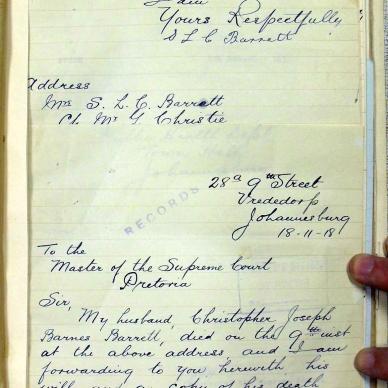 I am
Yours Respectfully
S L C Barrett
Address
Mrs S. L. C. Barrett
c/o Mr G Christie
28a 9th Street
Vrededorp
Johannesburg
18-11-18
RECORDS
To the
Master of the Supreme Court
Pretoria
Sir,
My husband, Christopher Joseph
Barnes Barrett, died on the 9th inst
at the above address, and I am
forwarding to you, herewith, his
will and a copy of his death